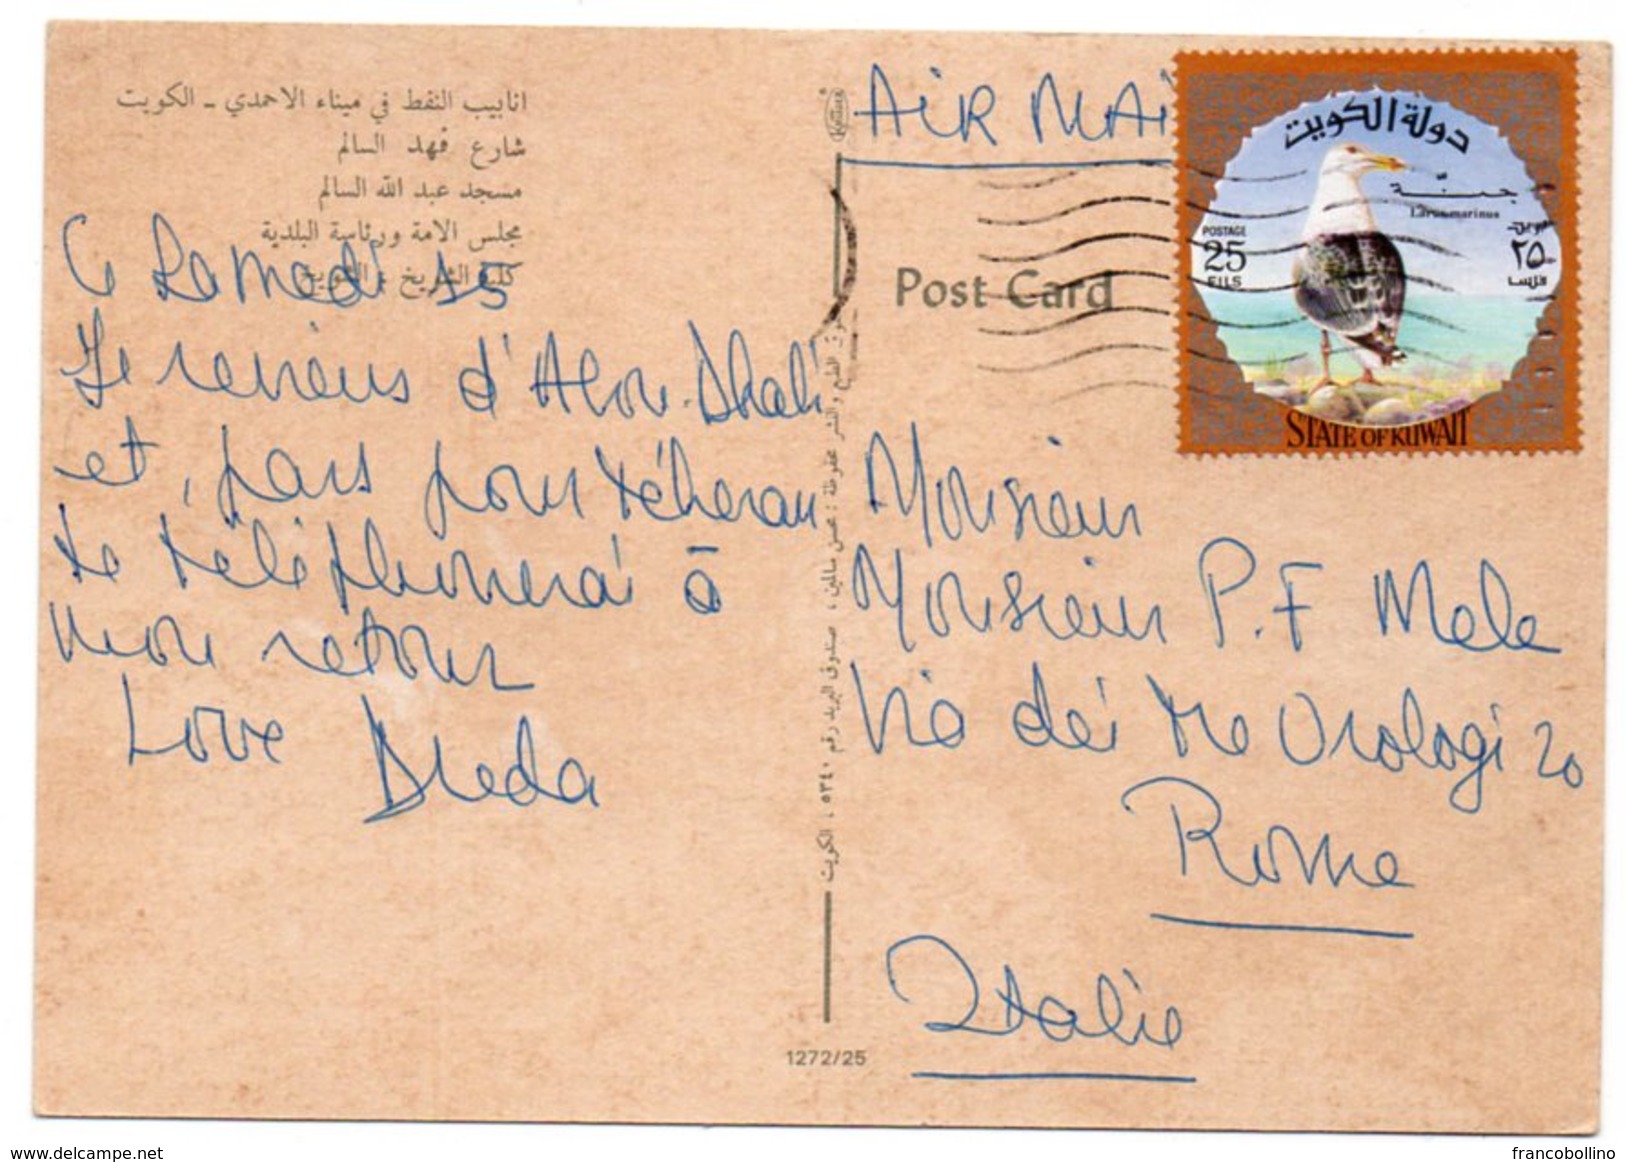 انابيب النفط في ميناء الاحمدي - الكويت
شارع فهد السالم
مسجد عبد الله السالم
مجلس الامة ورئاسة البلدية
Ce Samedi 15
Je reviens d'Abou-Dhabi
et, pars pour téhéran
te téléphonerai à
mon retour
Love
1272/25
AIR MAI
Post Card
دولة الكويت
Larus marinus
POSTAGE
25
FILS
٢٥
فلسا
STATE OF KUWAIT
Monsieur
Monsieur P.F Mele
Via dei Tre Orologi 20
Rome
Italie
www.delcampe.net
francobollino